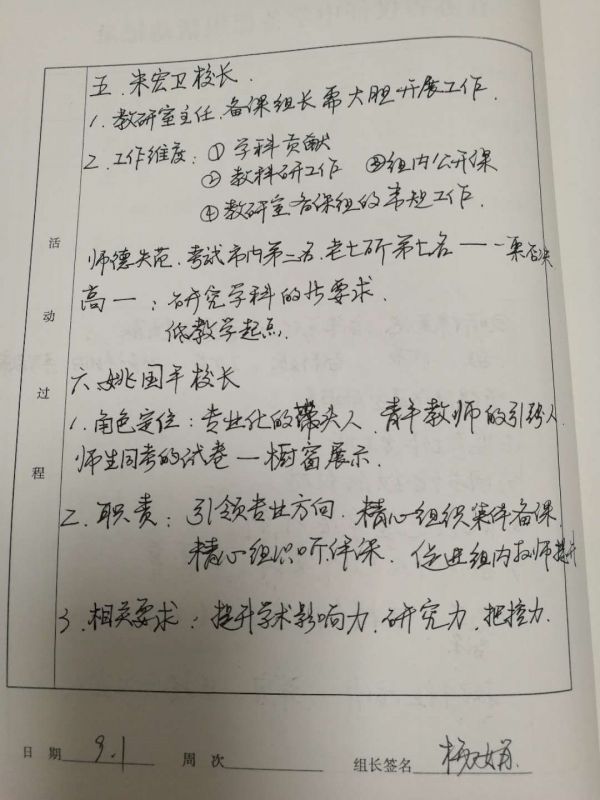 五、朱宏卫校长.
1. 教研室主任、备课组长需大胆开展工作.
2. 工作维度: ① 学科贡献
② 教科研工作 ③ 组内公开课
④ 教研室备课组的常规工作.
师德失范、考试市内第二名、老七所第七名 —— 一票否决
高一: 研究学科的 要求.
低教学起点.
六、姚国平校长
1. 角色定位: 专业化的带头人、青年教师的引路人
师生同考的试卷—橱窗展示.
2. 职责: 引领专业方向. 精心组织集体备课
精心组织听评课. 促进组内教师提升
3. 相关要求: 提升学术影响力、研究力、把控力.
活动过程
日期 9.1 周次 组长签名 杨文娟.